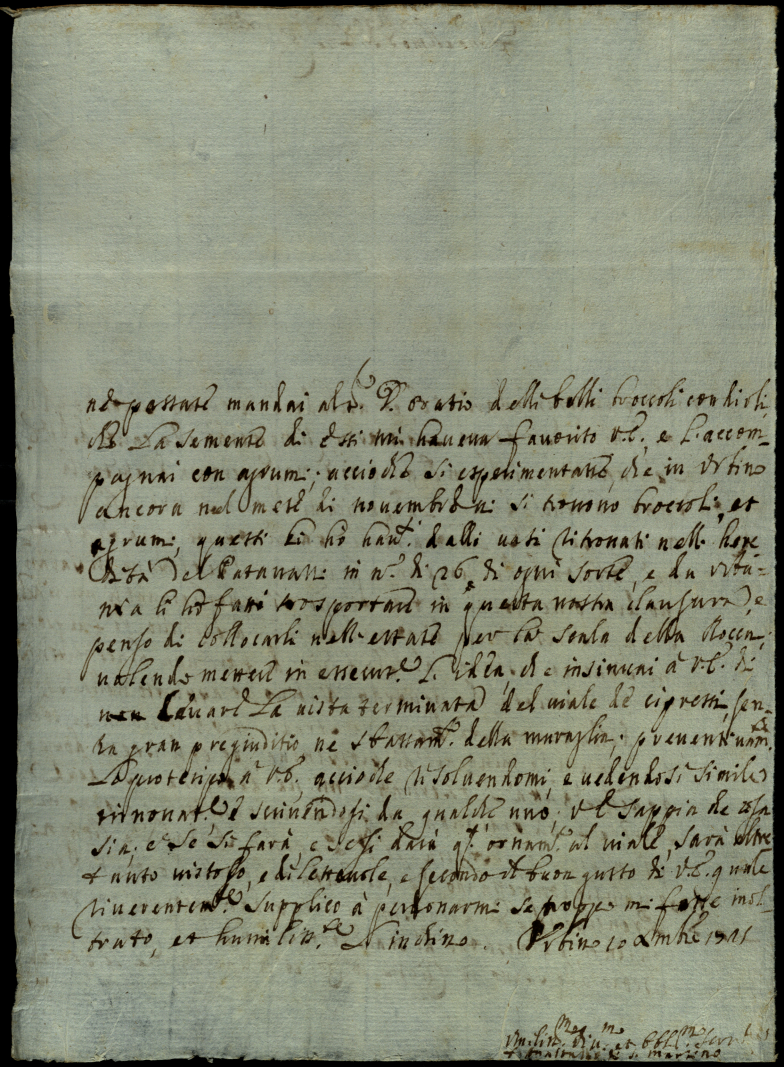 passate mandai al S.r D. oratio delli belli broccoli con dirli
che La semente di essi mi haveva favorito V.S. e l'accom-
pagnai con agrumi; acciochè si esperimentasse, che in Urbino
ancora nel mese di novembre vi si trovono broccoli, et
agrumi, questi li hò haut.i dalli vasi ritrovati nell' here
dità del in n.o di 26, di ogni sorte, e da Urba-
nia li hò fatti trasportare in questa nostra clausura, e
penso di collocarli nell'estate per la scala della Rocca,
volendo mettere in essecut.e l'idea, che insinuai à V.S. di
non Levare La vista terminata del viale de cipressi, sen-
za gran pregiuditio, ne sbassam.to della muraglia; prevent
Lo à V.S. acciochè risolvendomi, e vedendosi simile
rinnovat.e è scrivendosi da qualche uno, V.S. sappia che cosa
sia; e se si farà, e se si darà q.to ornam.to al viale, sarà oltre
tanto vistoso, e dilettevole, e secondo il buon gusto di V.S. quale
riverentem.te supplico à perdonarmi se troppo mi fosse inol-
trato, et humilm.te L'inchino. Urbino 10 Xmbre
Um.lis.mo div.mo et obbl.mo Serv.
di S. Martino